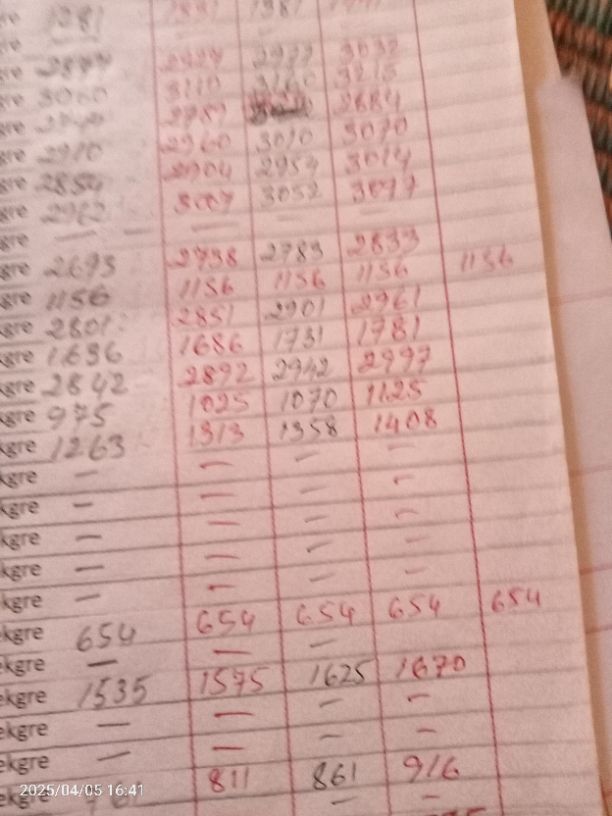 1281
gre —
gre 2877 2927 2977 3032
gre 3060 3110 3160 3215
gre 2789 2884
gre 2910 2960 3010 3070
gre 2854 2904 2954 3014
gre 2962 3007 3052 3097
gre — — — —
gre 2693 2738 2783 2833
gre 1156 1156 1156 1156 1156
gre 2801 2851 2901 2961
kgre 1636 1686 1731 1781
kgre 2842 2892 2942 2997
kgre 975 1025 1070 1125
kgre 1263 1313 1358 1408
kgre — — — —
kgre — — — —
kgre — — — —
kgre — — — —
kgre — — — —
ekgre 654 654 654 654 654
ekgre — — —
ekgre 1535 1575 1625 1670
ekgre — — — —
ekgre — — — —
ekgre 811 861 916
— —
2025/04/05 16:41